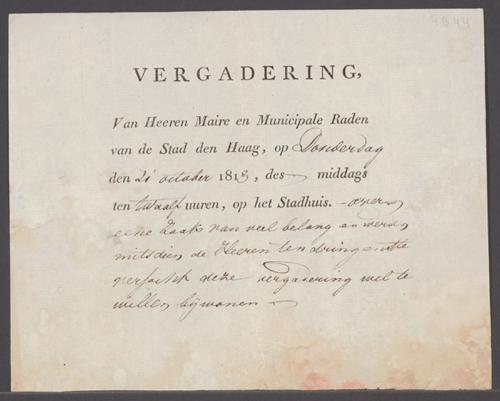 4844
VERGADERING,
Van Heeren Maire en Municipale Raden
van de Stad den Haag, op Donderdag
den 21 october 1813, des middags
ten twaalf uuren, op het Stadhuis. - over
eene zaak van veel belang en werden
mitsdien de Heeren ten dringenste
verzocht deze vergadering wel te
willen bijwonen